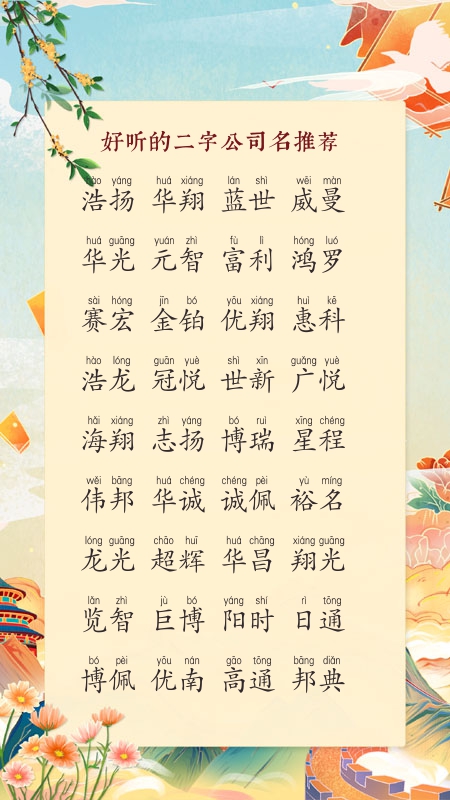 好听的二字公司名推荐
hào yáng huá xiáng lán shì wēi màn
浩扬 华翔 蓝世 威曼
huá guāng yuán zhì fù lì hóng luó
华光 元智 富利 鸿罗
sài hóng jīn bó yōu xiáng huì kē
赛宏 金铂 优翔 惠科
hào lóng guān yuè shì xīn guǎng yuè
浩龙 冠悦 世新 广悦
hǎi xiáng zhì yáng bó ruì xīng chéng
海翔 志扬 博瑞 星程
wěi bāng huá chéng chéng pèi yù míng
伟邦 华诚 诚佩 裕名
lóng guāng chāo huī huá chāng xiáng guāng
龙光 超辉 华昌 翔光
lǎn zhì jù bó yáng shí rì tōng
览智 巨博 阳时 日通
bó pèi yōu nán gāo tōng bāng diǎn
博佩 优南 高通 邦典